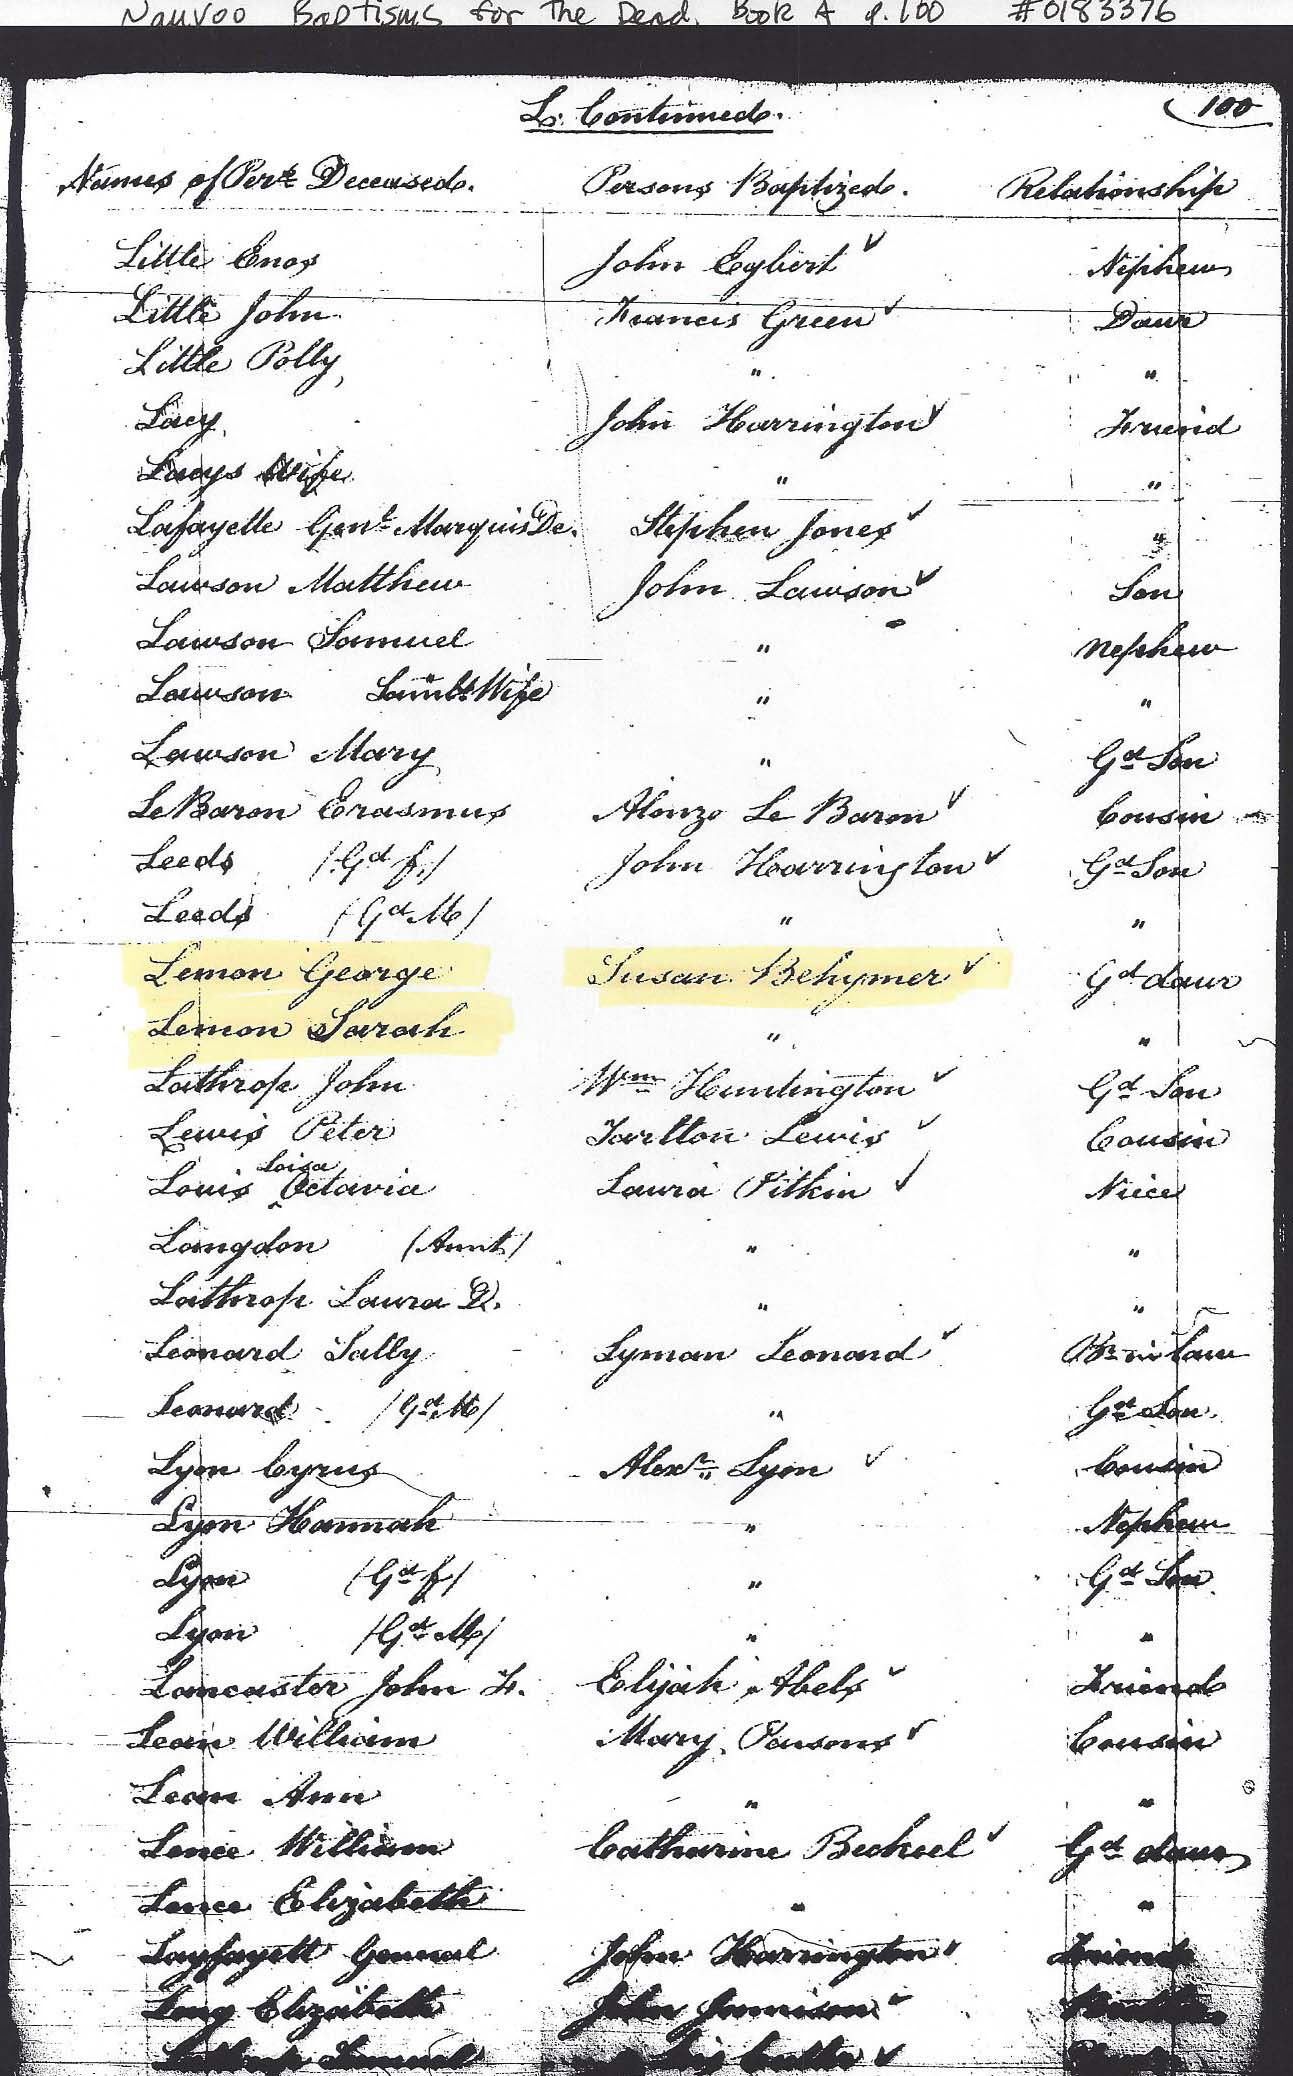 Nauvoo Baptisms for the Dead, Book A p. 100 #0183376
L. Continued.
100
Names of Pers. Deceased. Persons Baptized. Relationship
Little Enos John Egbert ✓ Nephew
Little John Francis Green ✓ Daur
Little Polly " "
Lacy John Harrington ✓ Friend
Lacys Wife " "
Lafayette Genl. Marquis De. Stephen Jones ✓ "
Lawson Matthew John Lawson ✓ Son
Lawson Samuel " Nephew
Lawson Samls Wife " "
Lawson Mary " Gd Son
Le Baron Erasmus Alonzo Le Baron ✓ Cousin
Leeds /Gd f./ John Harrington ✓ Gd Son
Leeds /Gd M/ " "
Lemon George Susan Behymer ✓ Gd daur
Lemon Sarah " "
Lathrop John Wm Huntington ✓ Gd Son
Lewis Peter Tarlton Lewis ✓ Cousin
Loisa
Louis ^ Octavia Laura Pitkin ✓ Niece
Langdon /Aunt/ " "
Lathrop Laura D. " "
Leonard Sally Lyman Leonard ✓ Br in law
Leonard /Gd M/ " Gd Son.
Lyon Cyrus Alexr. Lyon ✓ Cousin
Lyon Hannah " Nephew
Lyon /Gd f/ " Gd Son
Lyon /Gd M/ " "
Lancaster John F. Elijah Abels ✓ Friend
Lean William Mary Parsons ✓ Cousin
Lean Ann " "
Lence William Catharine Becksel ✓ Gd daur
Lence Elizabeth " "
Layfayett General John Harrington ✓ Friend
Long Elizabeth John ✓
Lathrop Samuel Cutler ✓